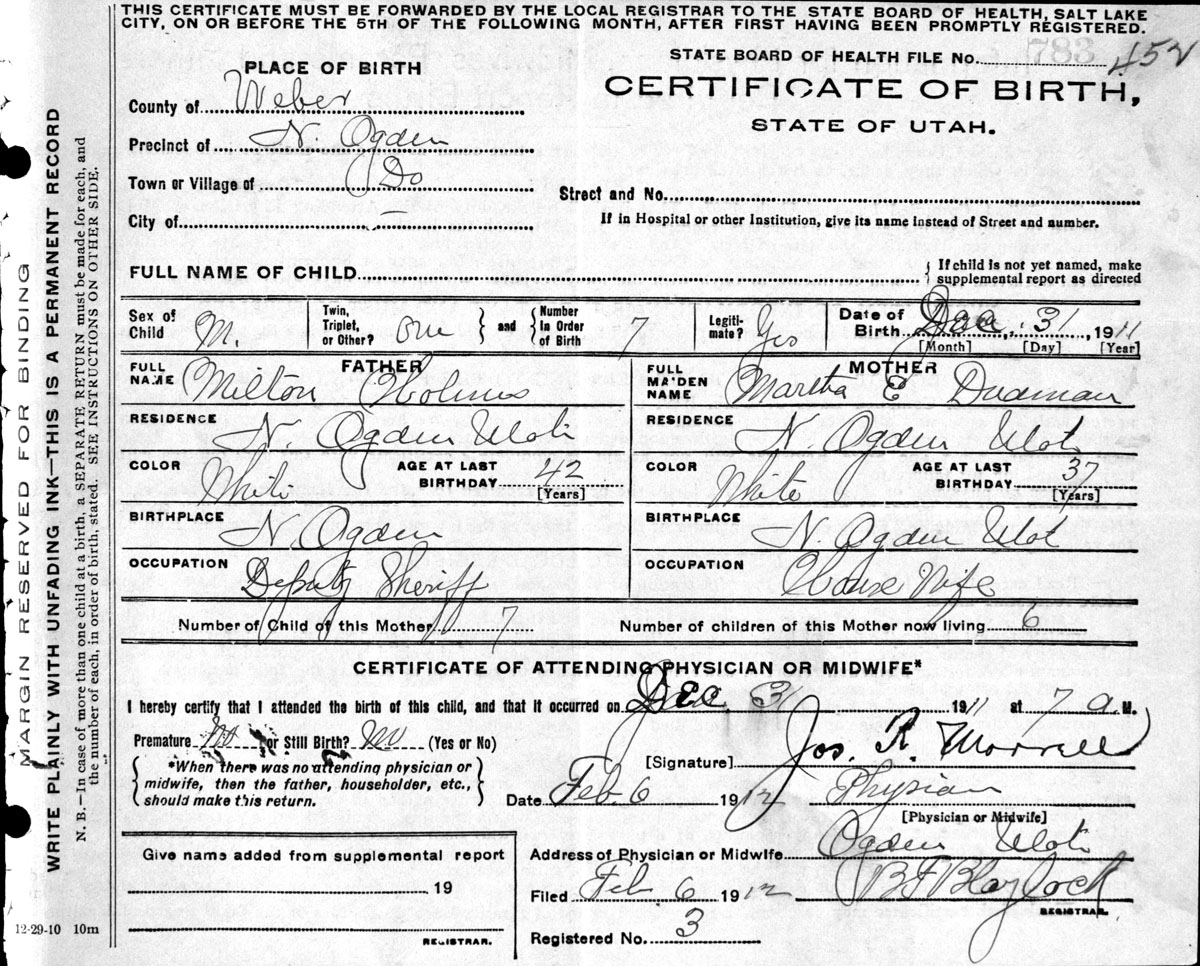 THIS CERTIFICATE MUST BE FORWARDED BY THE LOCAL REGISTRAR TO THE STATE BOARD OF HEALTH, SALT LAKE
CITY, ON OR BEFORE THE 5TH OF THE FOLLOWING MONTH, AFTER FIRST HAVING BEEN PROMPTLY REGISTERED.
STATE BOARD OF HEALTH FILE No. 783 452
PLACE OF BIRTH
CERTIFICATE OF BIRTH,
STATE OF UTAH.
County of Weber
Precinct of N. Ogden
Town or Village of Do
Street and No.
City of —
If in Hospital or other Institution, give its name instead of Street and number.
FULL NAME OF CHILD
{ If child is not yet named, make
supplemental report as directed
Sex of Child M.
Twin, Triplet, or Other? one } and { Number In Order of Birth 7
Legiti-mate? Yes
Date of Birth Dec. 31, 1911
[Month] [Day] [Year]
FATHER
FULL NAME Milton Holmes
MOTHER
FULL MAIDEN NAME Martha E Dudman
RESIDENCE N. Ogden Utah
RESIDENCE N Ogden Utah
COLOR White
AGE AT LAST BIRTHDAY 42 [Years]
COLOR White
AGE AT LAST BIRTHDAY 37 [Years]
BIRTHPLACE N. Ogden
BIRTHPLACE N. Ogden Utah
OCCUPATION Deputy Sheriff
OCCUPATION House Wife
Number of Child of this Mother 7
Number of children of this Mother now living 6
CERTIFICATE OF ATTENDING PHYSICIAN OR MIDWIFE*
I hereby certify that I attended the birth of this child, and that it occurred on Dec. 31 1911 at 7 a M.
Premature No or Still Birth? No (Yes or No)
{ *When there was no attending physician or
midwife, then the father, householder, etc.,
should make this return. }
[Signature] Jos. R. Morrell
Date Feb. 6 1912 Physian
[Physician or Midwife]
Address of Physician or Midwife Ogden Utah
Filed Feb 6 1912 B F Blaylock
REGISTRAR.
Registered No. 3
Give name added from supplemental report
19
REGISTRAR.
12-29-10 10m
MARGIN RESERVED FOR BINDING
WRITE PLAINLY WITH UNFADING INK—THIS IS A PERMANENT RECORD
N. B.—In case of more than one child at a birth, a SEPARATE RETURN must be made for each, and
the number of each, in order of birth, stated. SEE INSTRUCTIONS ON OTHER SIDE.